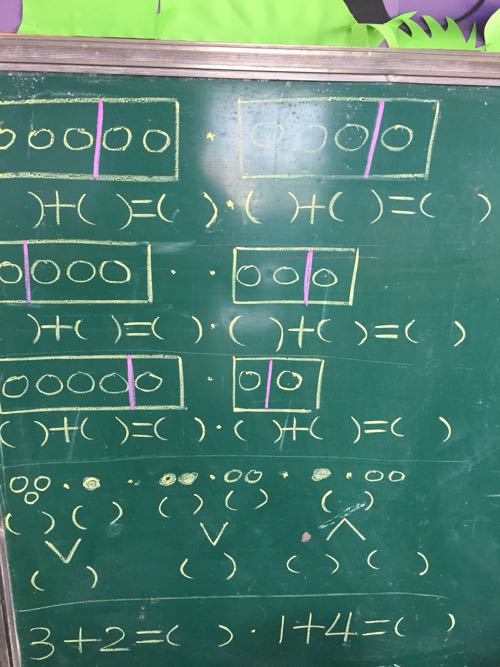 )+( )=( )·( )+( )=( )
)+( )=( )·( )+( )=( )
( )+( )=( )·( )+( )=( )
( ) ( ) ( ) ( ) ( )
( ) ( ) ( ) ( )
3+2=( )·1+4=( )